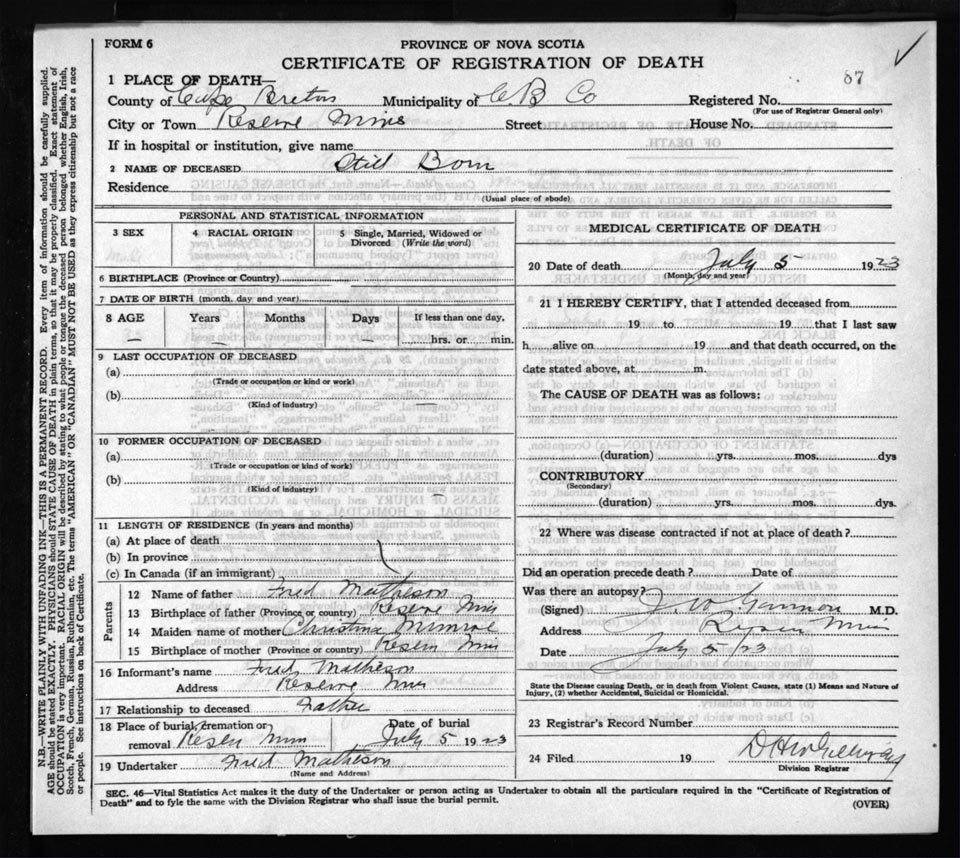 FORM 6
PROVINCE OF NOVA SCOTIA
CERTIFICATE OF REGISTRATION OF DEATH
87
1 PLACE OF DEATH—
County of Cape Breton Municipality of C.B Co Registered No.
(For use of Registrar General only)
City or Town Reserve Mines Street House No.
If in hospital or institution, give name
2 NAME OF DECEASED Still Born
Residence
(Usual place of abode)
PERSONAL AND STATISTICAL INFORMATION
3 SEX 4 RACIAL ORIGIN 5 Single, Married, Widowed or Divorced (Write the word)
6 BIRTHPLACE (Province or Country)
7 DATE OF BIRTH (month, day and year)
8 AGE Years Months Days If less than one day,
— — — hrs. or min.
9 LAST OCCUPATION OF DECEASED
(a)
(Trade or occupation or kind or work)
(b)
(Kind of industry)
10 FORMER OCCUPATION OF DECEASED
(a)
(Trade or occupation or kind or work)
(b)
(Kind of industry)
11 LENGTH OF RESIDENCE (In years and months)
(a) At place of death
(b) In province
(c) In Canada (if an immigrant)
Parents
12 Name of father Fred Matheson
13 Birthplace of father (Province or country) Reserve Mines
14 Maiden name of mother Christina Munroe
15 Birthplace of mother (Province or country) Reserve Mines
16 Informant's name Fred Matheson
Address Reserve Mines
17 Relationship to deceased Father
18 Place of burial, cremation or removal Reserve Mines Date of burial July 5 1923
19 Undertaker Fred Matheson
(Name and Address)
MEDICAL CERTIFICATE OF DEATH
20 Date of death July 5 1923
(Month, day and year)
21 I HEREBY CERTIFY, that I attended deceased from
19 to 19 that I last saw
h alive on 19 and that death occurred, on the
date stated above, at m.
The CAUSE OF DEATH was as follows:
(duration) yrs. mos. dys
CONTRIBUTORY
(Secondary)
(duration) yrs. mos. dys.
22 Where was disease contracted if not at place of death?
Did an operation precede death? Date of
Was there an autopsy?
(Signed) M.D.
Address Mines
Date July 5/23
State the Disease causing Death, or in Death from Violent Causes, state (1) Means and Nature of
Injury, (2) whether Accidental, Suicidal or Homicidal.
23 Registrar's Record Number
24 Filed 19
Division Registrar
SEC. 46—Vital Statistics Act makes it the duty of the Undertaker or person acting as Undertaker to obtain all the particulars required in the "Certificate of Registration of
Death" and to fyle the same with the Division Registrar who shall issue the burial permit.
(OVER)
N.B.—WRITE PLAINLY WITH UNFADING INK—THIS IS A PERMANENT RECORD. Every item of information should be carefully supplied.
AGE should be stated EXACTLY. PHYSICIANS should STATE CAUSE OF DEATH in plain terms, so that it may be properly classified. Exact statement of
OCCUPATION is very important. RACIAL ORIGIN will be described by stating to what people or tongue the deceased person belonged, whether English, Irish,
Scotch, French, German, Russian, Ruthenian, etc. The terms "AMERICAN" OR "CANADIAN" MUST NOT BE USED as they express citizenship but not a race
or people. See instructions on back of Certificate.